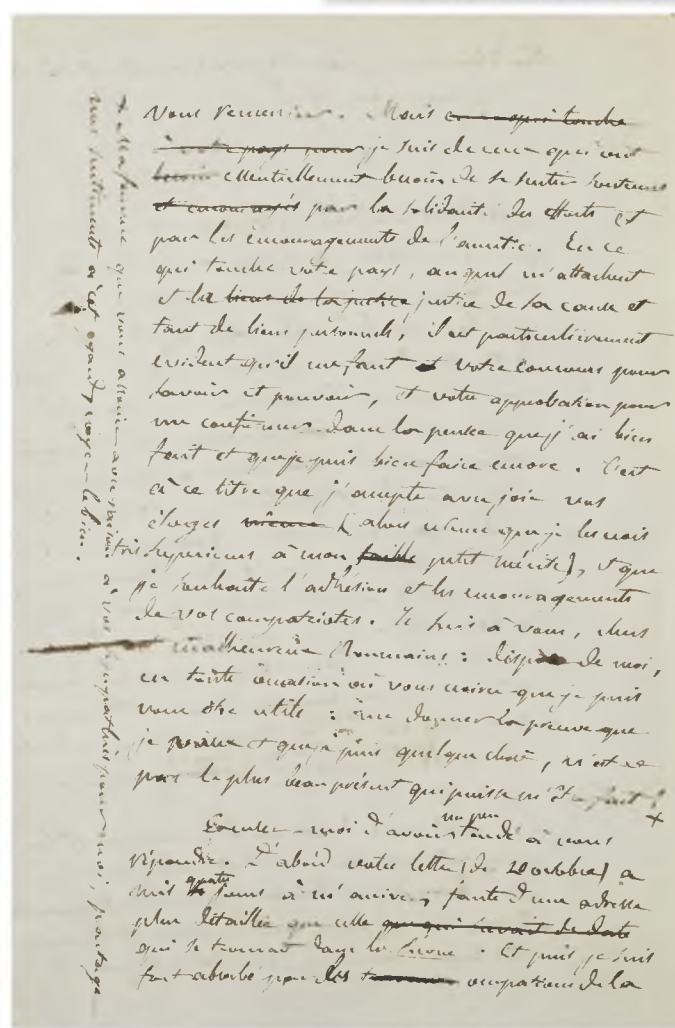 vous remercier. Mais en ce qui touche
votre pays pour je suis de ceux qui ont
besoin essentiellement besoin de se sentir soutenus
et encouragés par la solidarité des efforts et
par les encouragements de l'amitié. En ce
qui touche votre pays, auquel m'attachent
et la liens de la justice justice de sa cause et
tant de liens personnels, il est particulièrement
évident qu'il me faut et votre concours pour
savoir et pouvoir, et votre approbation pour
me confirmer dans la pensée que j'ai bien
fait et que je puis bien faire encore. C'est
à ce titre que j'accepte avec joie vos
éloges même (alors même que je les sais
très supérieurs à mon faible petit mérite), et que
je souhaite l'adhésion et les encouragements
de vos compatriotes. Je suis à vous, chers
et malheureux Roumains: disposez de moi,
en toute occasion où vous croirez que je puis
vous être utile: me donner la preuve que
je veux et que je puis quelque chose, n'est-ce
pas le plus beau présent qui puisse m'être fait? +
Excusez-moi d'avoir un peu tardé à vous
répondre. D'abord votre lettre (de 20 octobre) a
mis quatre jours à m'arriver, faute d'une adresse
plus détaillée que celle que qui suivait de date
qui se trouvait dans le livre. Et puis je suis
fort absorbé par les occupations de la
+ Ma femme que vous associez avec raison à vos sympathies pour moi, partage
mes sentiments à cet égard, croyez-le bien.